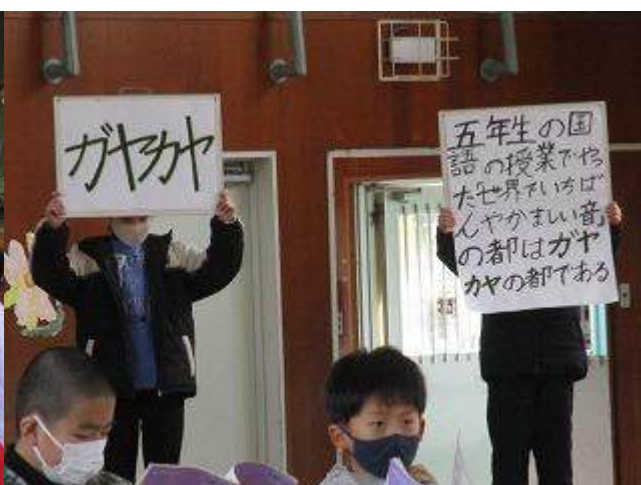 ガヤカヤ
五年生の国
語の授業でやっ
た世界でいちば
んやかましい音
の都はガヤ
カヤの都である